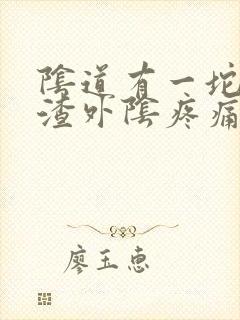 陰道有一坨
渣外陰疼痛
廖玉惠